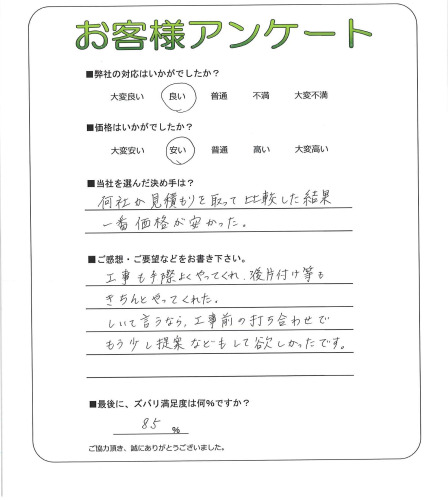 お客様アンケート
■弊社の対応はいかがでしたか?
大変良い 良い 普通 不満 大変不満
■価格はいかがでしたか?
大変安い 安い 普通 高い 大変高い
■当社を選んだ決め手は?
何社か見積もりを取って比較した結果
一番価格が安かった。
■ご感想・ご要望などをお書き下さい。
工事も手際よくやってくれ、後片付け等も
きちんとやってくれた。
しいて言うなら、工事前の打ち合わせで
もう少し提案などもして欲しかったです。
■最後に、ズバリ満足度は何%ですか?
85 %
ご協力頂き、誠にありがとうございました。